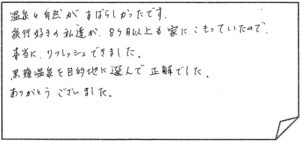 温泉と自然がすばらしかったです。
旅行好きの私達が、8ヶ月以上も家にこもっていたので、
本当に、リフレッシュできました。
黒龍温泉を目的地に選んで正解でした。
ありがとうございました。